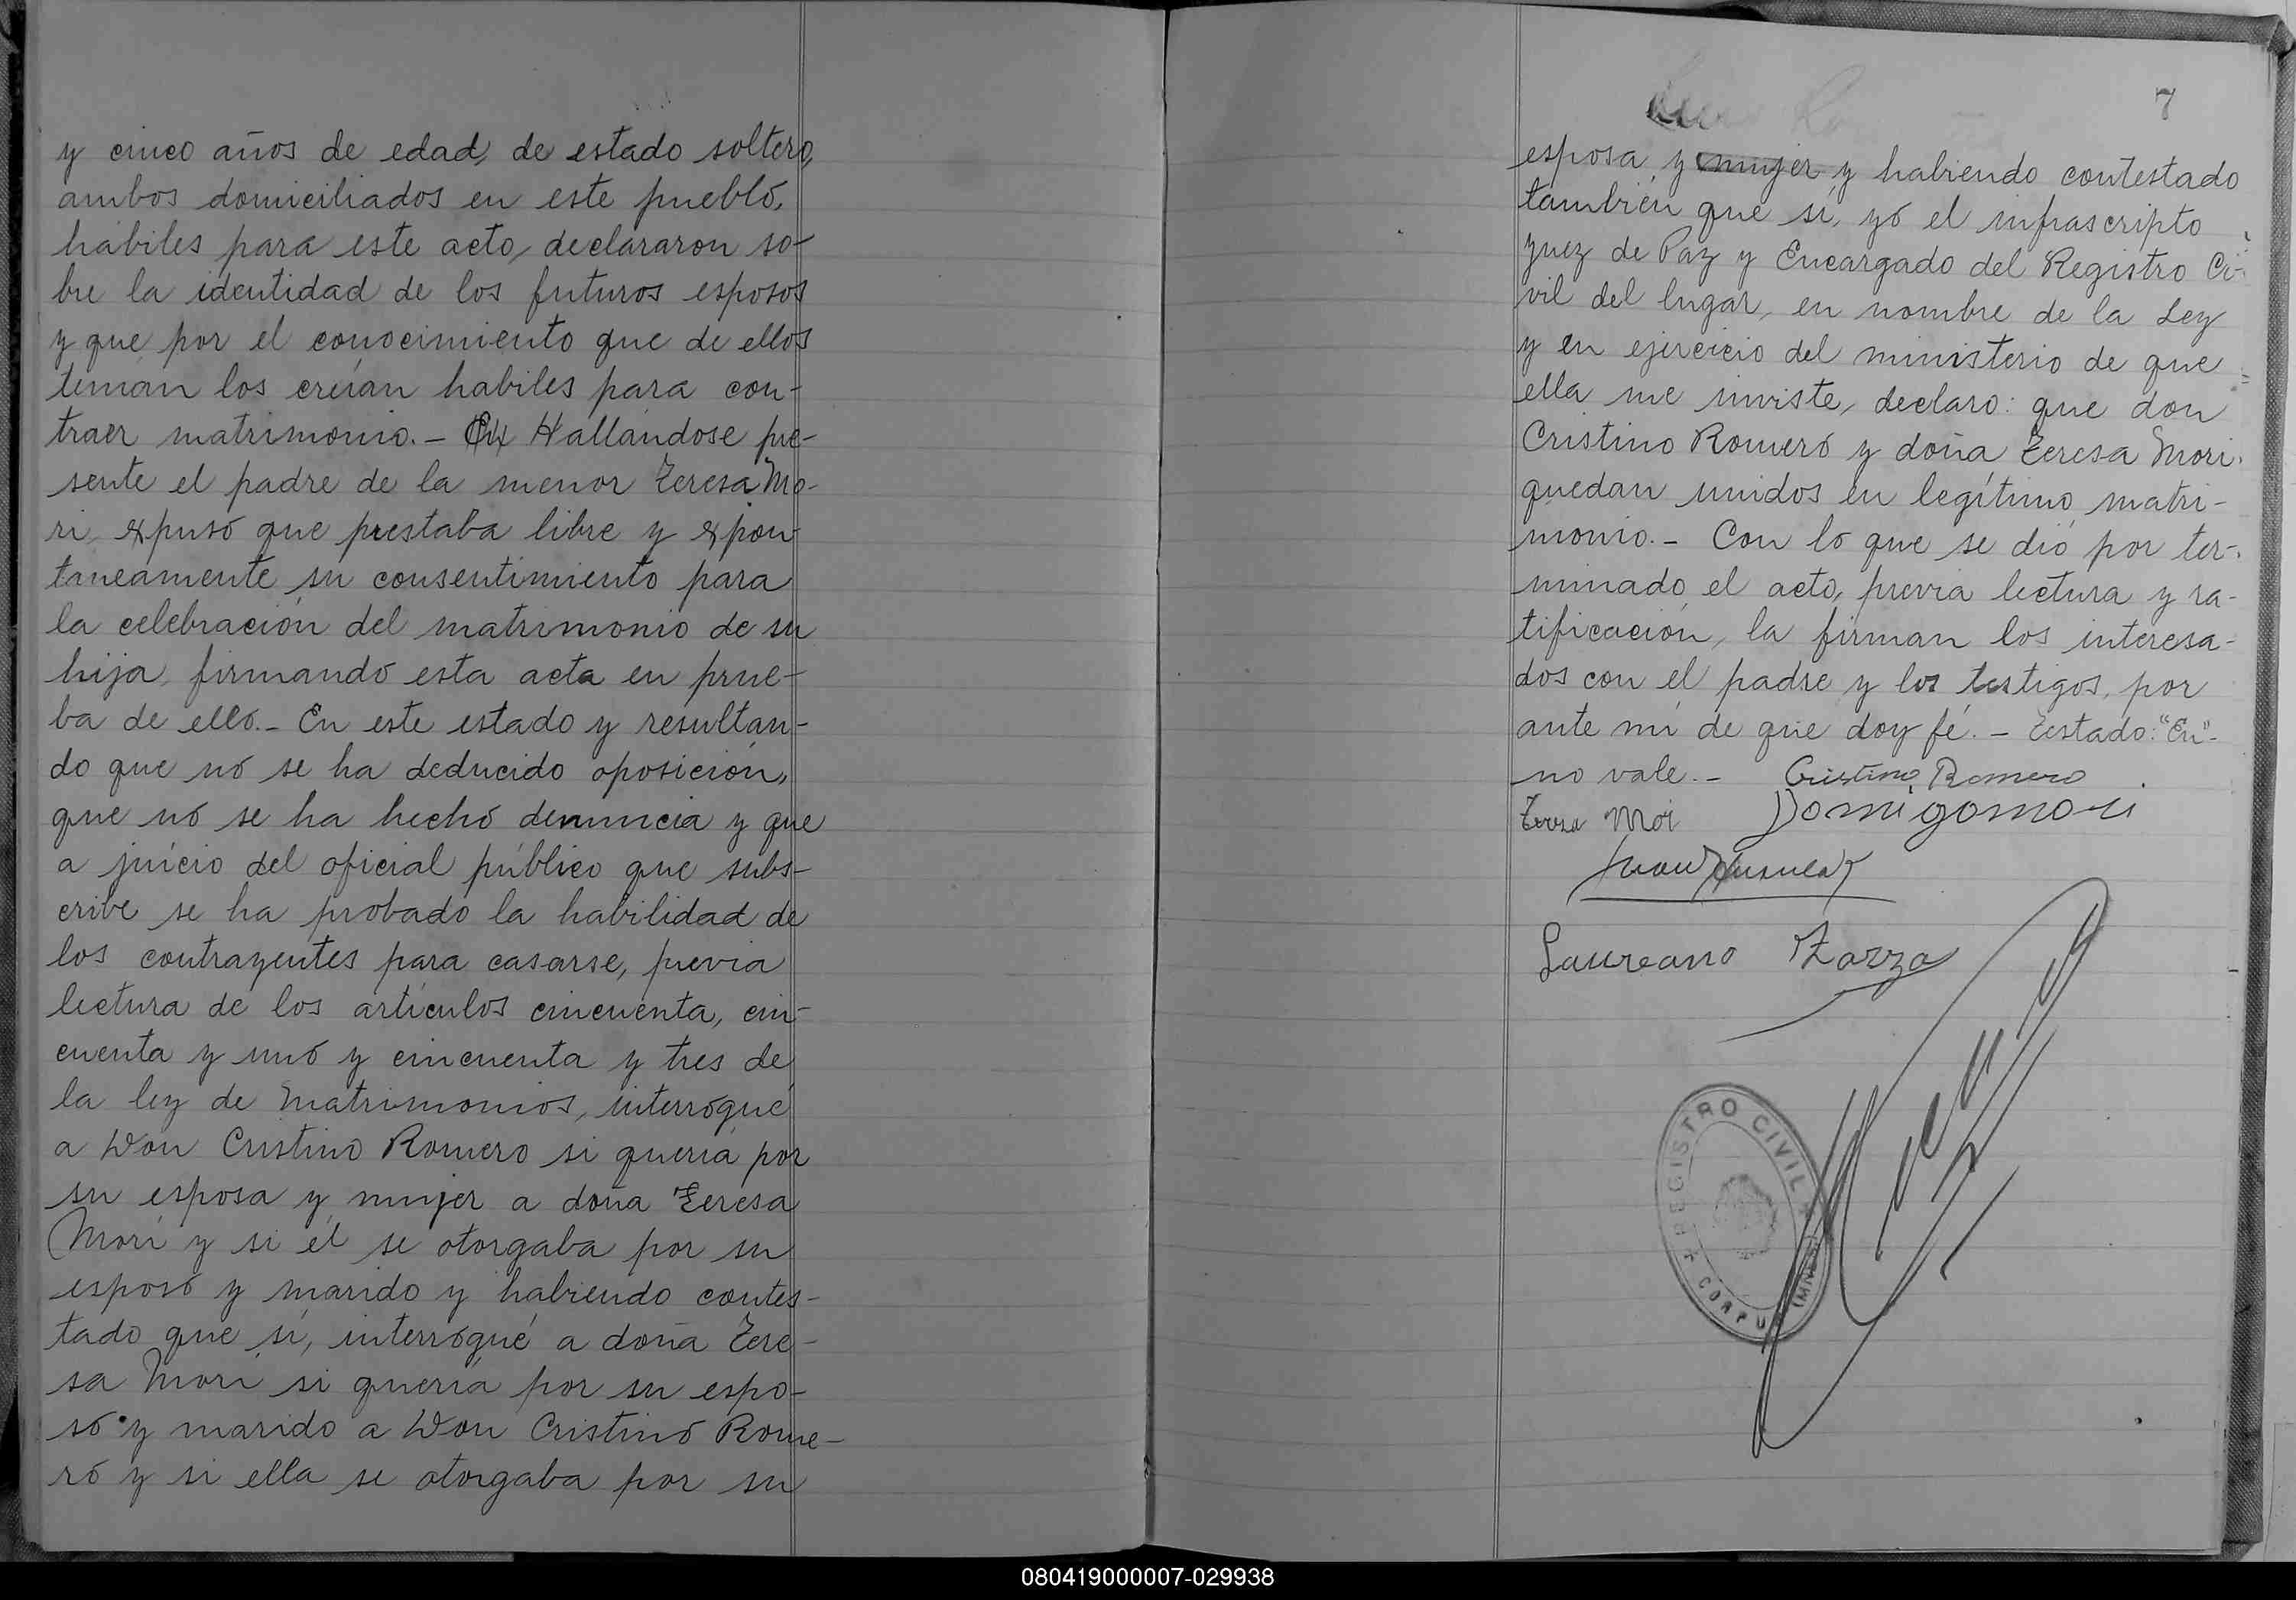 y cinco años de edad, de estado soltero,
ambos domiciliados en este pueblo,
hábiles para este acto, declararon so-
bre la identidad de los futuros esposos
y que por el conocimiento que de ellos
tenían los creían habiles para con-
traer matrimonio.- En Hallándose pre-
sente el padre de la menor Teresa Mo-
ri, expuso que prestaba libre y expon-
taneamente su consentimiento para
la celebración del matrimonio de su
hija, firmando esta acta en prue-
ba de ello.- En este estado y resultan-
do que no se ha deducido oposición,
que no se ha hecho denuncia y que
a juício del oficial público que subs-
cribe se ha probado la habilidad de
los contrayentes para casarse, previa
lectura de los artículos cincuenta, cin-
cuenta y uno y cincuenta y tres de
la ley de Matrimonios, interrogué
a Don Cristino Romero si quería por
su esposa y mujer a doña Teresa
Mori y si él se otorgaba por su
esposo y marido y habiendo contes-
tado que sí, interrogué a doña Tere-
sa Mori si quería por su espo-
so y marido a Don Cristino Rome-
ro y si ella se otorgaba por su
7
esposa y mujer y habiendo contestado
también que sí, yo el infrascripto
Juez de Paz y Encargado del Registro Ci-
vil del lugar, en nombre de la Ley
y en ejercicio del ministerio de que
ella me inviste, declaro: que don
Cristino Romero y doña Teresa Mori
quedan unidos en legítimo matri-
monio.- Con lo que se dió por ter-
minado el acto, previa lectura y ra-
tificación, la firman los interesa-
dos con el padre y los testigos, por
ante mí de que doy fé.- Testado: "En"-
no vale.- Cristino Romero
Teresa Mori Domigo mori
Juan
Laureano Zarza
REGISTRO CIVIL
CORPUS (MNES)
080419000007-029938